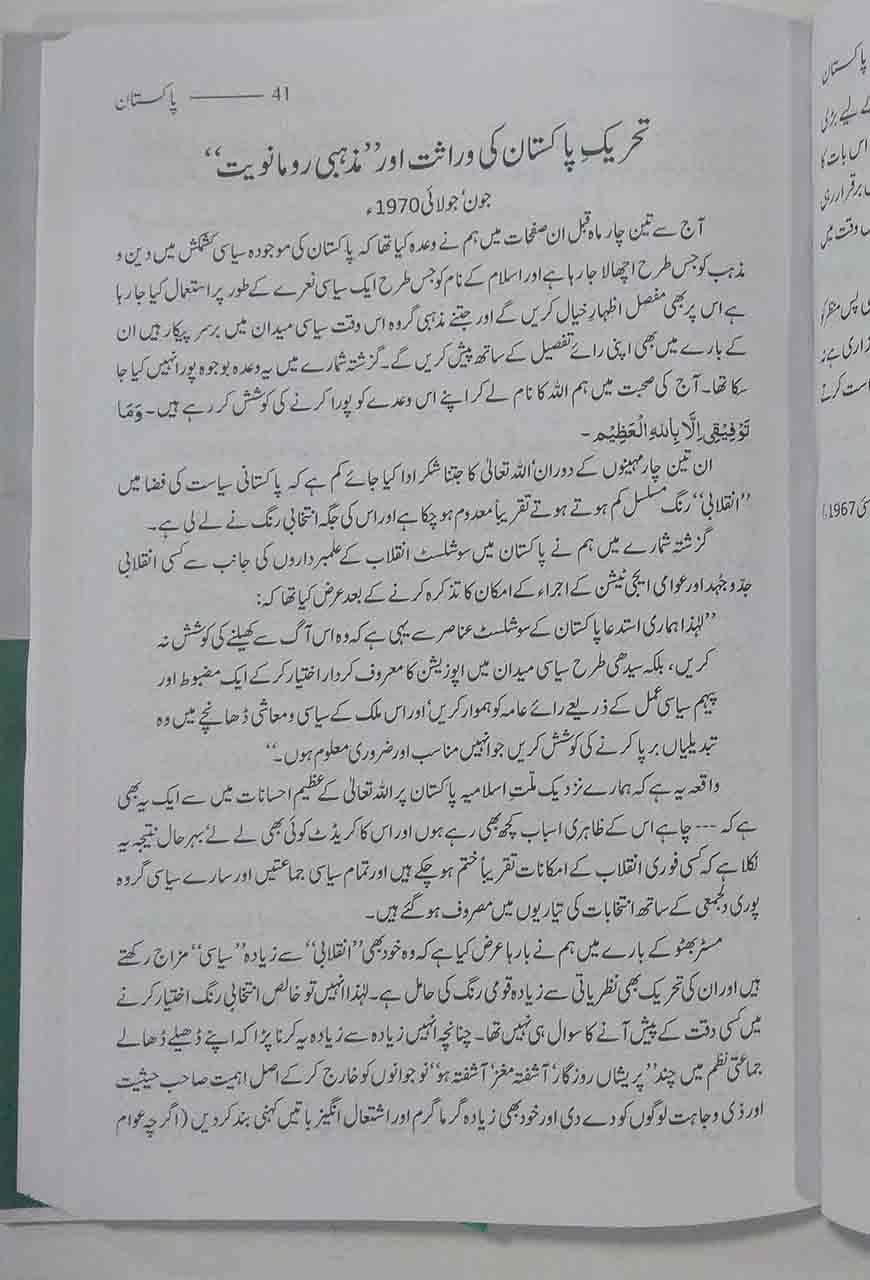 41 ——— پاکستان
تحریکِ پاکستان کی وراثت اور ”مذہبی رومانویت“
جون‘ جولائی 1970ء
آج سے تین چار ماہ قبل ان صفحات میں ہم نے وعدہ کیا تھا کہ پاکستان کی موجودہ سیاسی کشمکش میں دین و
مذہب کو جس طرح اچھالا جا رہا ہے اور اسلام کے نام کو جس طرح ایک سیاسی نعرے کے طور پر استعمال کیا جا رہا
ہے اس پر بھی مفصل اظہارِ خیال کریں گے اور جتنے مذہبی گروہ اس وقت سیاسی میدان میں برسرِ پیکار ہیں ان
کے بارے میں بھی اپنی رائے تفصیل کے ساتھ پیش کریں گے۔ گزشتہ شمارے میں یہ وعدہ بوجوہ پورا نہیں کیا جا
سکا تھا۔ آج کی صحبت میں ہم اللہ کا نام لے کر اپنے اس وعدے کو پورا کرنے کی کوشش کر رہے ہیں۔ وَمَا
تَوْفِیْقِی اِلَّا بِاللہِ الْعَظِیْم۔
ان تین چار مہینوں کے دوران‘ اللہ تعالیٰ کا جتنا شکر ادا کیا جائے کم ہے کہ پاکستانی سیاست کی فضا میں
”انقلابی“ رنگ مسلسل کم ہوتے ہوتے تقریباً معدوم ہو چکا ہے اور اس کی جگہ انتخابی رنگ نے لے لی ہے۔
گزشتہ شمارے میں ہم نے پاکستان میں سوشلسٹ انقلاب کے علمبرداروں کی جانب سے کسی انقلابی
جدّوجُہد اور عوامی ایجی ٹیشن کے اجراء کے امکان کا تذکرہ کرنے کے بعد عرض کیا تھا کہ:
”لہٰذا ہماری استدعا پاکستان کے سوشلسٹ عناصر سے یہی ہے کہ وہ اس آگ سے کھیلنے کی کوشش نہ
کریں، بلکہ سیدھی طرح سیاسی میدان میں اپوزیشن کا معروف کردار اختیار کر کے ایک مضبوط اور
پیہم سیاسی عمل کے ذریعے رائے عامہ کو ہموار کریں‘ اور اس ملک کے سیاسی و معاشی ڈھانچے میں وہ
تبدیلیاں برپا کرنے کی کوشش کریں جو انہیں مناسب اور ضروری معلوم ہوں۔“
واقعہ یہ ہے کہ ہمارے نزدیک ملّتِ اسلامیہ پاکستان پر اللہ تعالیٰ کے عظیم احسانات میں سے ایک یہ بھی
ہے کہ --- چاہے اس کے ظاہری اسباب کچھ بھی رہے ہوں اور اس کا کریڈٹ کوئی بھی لے لے‘ بہرحال نتیجہ یہ
نکلا ہے کہ کسی فوری انقلاب کے امکانات تقریباً ختم ہو چکے ہیں اور تمام سیاسی جماعتیں اور سارے سیاسی گروہ
پوری دلجمعی کے ساتھ انتخابات کی تیاریوں میں مصروف ہو گئے ہیں۔
مسٹر بھٹو کے بارے میں ہم نے بارہا عرض کیا ہے کہ وہ خود بھی ”انقلابی“ سے زیادہ ”سیاسی“ مزاج رکھتے
ہیں اور ان کی تحریک بھی نظریاتی سے زیادہ قومی رنگ کی حامل ہے۔ لہٰذا انہیں تو خالص انتخابی رنگ اختیار کرنے
میں کسی دقت کے پیش آنے کا سوال ہی نہیں تھا۔ چنانچہ انہیں زیادہ سے زیادہ یہ کرنا پڑا کہ اپنے ڈھیلے ڈھالے
جماعتی نظم میں چند ”پریشاں روزگار‘ آشفتہ مغز‘ آشفتہ ہو“ نوجوانوں کو خارج کر کے اصل اہمیت صاحب حیثیت
اور ذی وجاہت لوگوں کو دے دی اور خود بھی زیادہ گرما گرم اور اشتعال انگیز باتیں کہنی بند کر دیں (اگرچہ عوام
پاکستان
کے لیے بڑی
اس بات کا
برقرار رہی
وقت میں
پس منظر کو
1967ء)